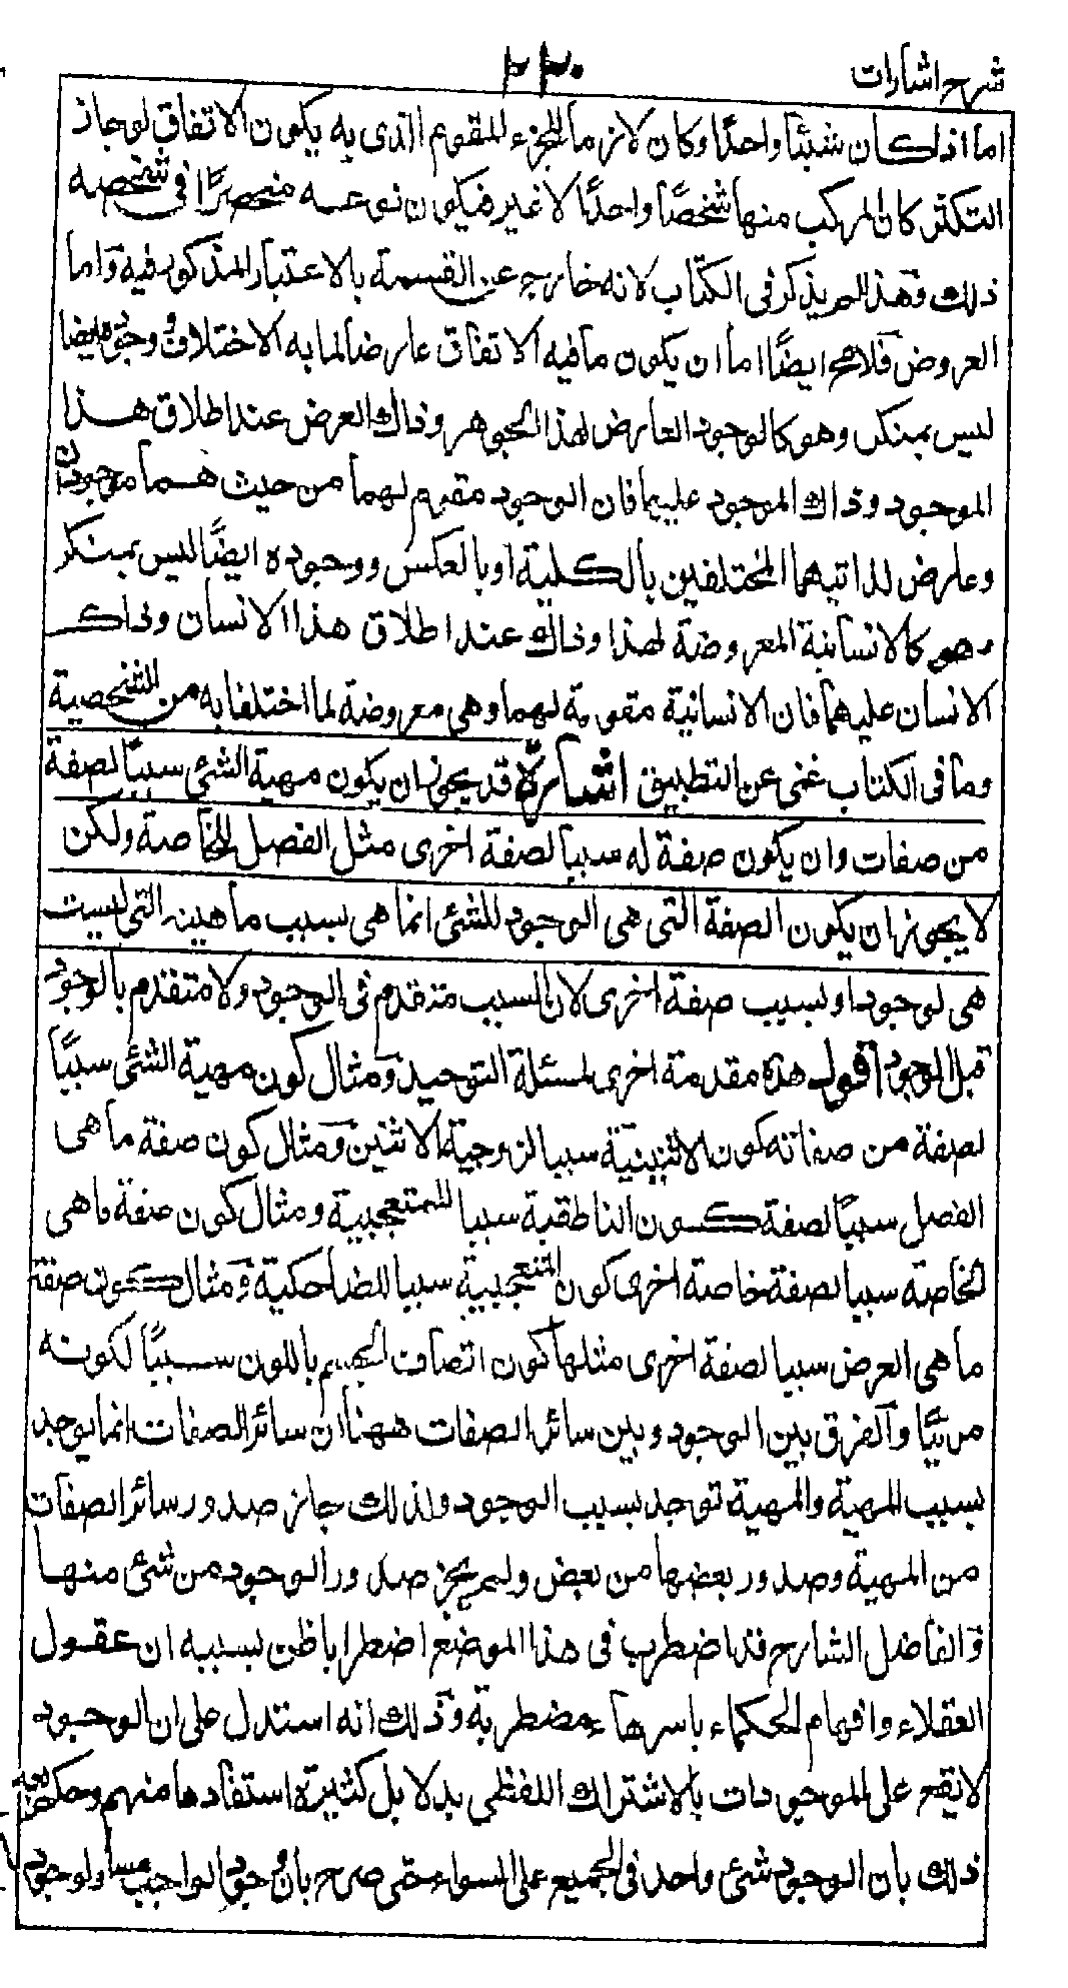 شرح اشارات
٢٢٠
اما اذا كان شيئا واحدًا وكان لازما للجزء المقوم الذى به يكون الاتفاق لو جاز
التكثر كان المركب منها شخصًا واحدًا لا غير فيكون نوعـــه منحصرًا فى شخصه
ذلك وهذا لم يذكر فى الكتاب لانه خارج عن القسمة بالاعتبار المذكور فيه واما
العروض فلا يخ ايضًا اما ان يكون ما فيه الاتفاق عارضا لما به الاختلاف ووجوده ايضا
ليس بمنكر وهو كالوجود العارض لهذا الجوهر وذاك العرض عند اطلاق هــذا
الموجود وذاك الموجود عليهما فان الوجود مقوم لهما من حيث هــما موجودان
وعارض لذاتيهما المختلفين بالكلية او بالعكس ووجوده ايضًا ليس بمنكر
وهو كالانسانية المعروضة لهذا وذاك عند اطلاق هذا الانسان وذاك
الانسان عليهما فان الانسانية مقومة لهما وهى معروضة لما اختلفا به من الشخصية
وما فى الكتاب غنى عن التطبيق اشارة قد يجوز ان يكون مهية الشئ سببًا لصفة
من صفات وان يكون صفة له سببا لصفة اخرى مثل الفصل للخاصة ولكن
لا يجوز ان يكون الصفة التى هى الوجود للشئ انما هى بسبب ماهيته التى ليست
هى لوجود او بسبب صفة اخرى لان السبب متقدم فى الوجود ولا متقدم بالوجود
قبل الوجود اقول هذه مقدمة اخرى لمسئلة التوحيد ومثال كون مهية الشئ سببًا
لصفة من صفاته كون الاثنينية سببا لزوجية الاثنين ومثال كون صفة ما هى
الفصل سببًا لصفة كــون الناطقية سببا للمتعجبية ومثال كون صفة ما هى
الخاصة سببا لصفة خاصة اخرى كون المتعجبية سببا للضاحكية ومثال كون صفة
ما هى العرض سببا لصفة اخرى مثلها كون اتصاف الجسم باللون سببًا لكونه
مرئيًا والفرق بين الوجود وبين سائر الصفات ههنا ان سائر الصفات انما يوجد
بسبب المهية والمهية توجد بسبب الوجود ولذلك جاز صدور سائر الصفات
من المهية وصدور بعضها من بعض ولم يجز صدور الوجود من شئ منهــا
والفاضل الشارح قد اضطرب فى هذا الموضع اضطرابا ظن بسببه ان عقــول
العقلاء وافهام الحكماء باسرها مضطربة وذلك انه استدل على ان الوجود
لا يقع على الموجودات بالاشتراك اللفظى بدلايل كثيرة استفادها منهم وحكم بعد
ذلك بان الوجود شئ واحد فى الجميع على السواء حتى صرح بان وجود الواجب مساو لوجود